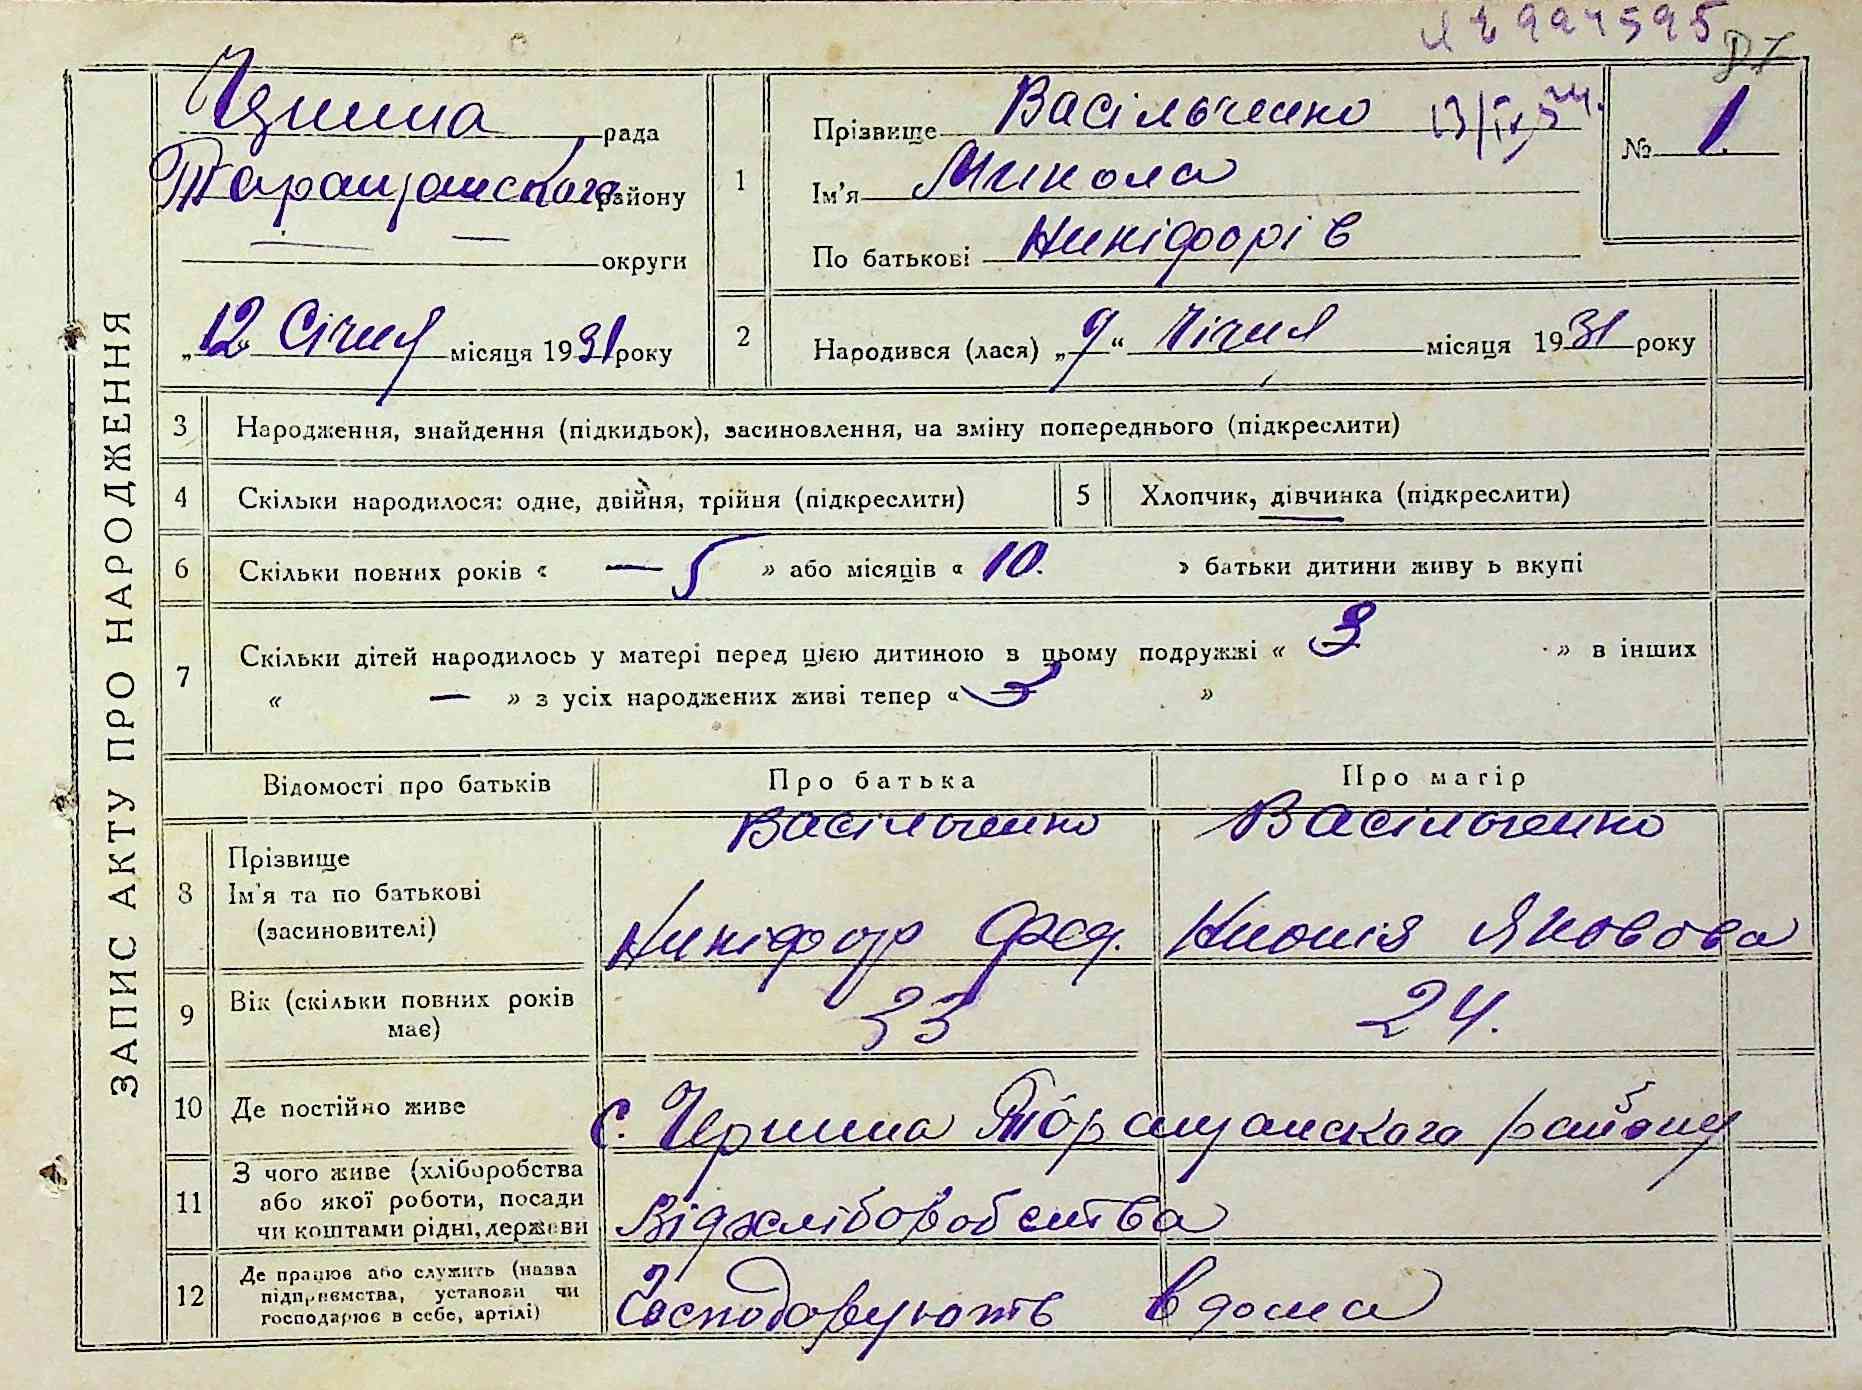 ЯЕ 994595
ЗАПИС АКТУ ПРО НАРОДЖЕННЯ
рада
Таращанського району
округи
„12 Січня місяця 1931 року
1
Прізвище Васільченко
Ім'я Микола
По батькові Никіфорів
№ 1
2
Народився (лася) „9“ Січня місяця 1931 року
3 Народження, знайдення (підкидьок), засиновлення, на зміну попереднього (підкреслити)
4 Скільки народилося: одне, двійня, трійня (підкреслити)
5 Хлопчик, дівчинка (підкреслити)
6 Скільки повних років « — 5 » або місяців « 10. » батьки дитини живу ь вкупі
7 Скільки дітей народилось у матері перед цією дитиною в цьому подружжі « 3 » в інших
« — » з усіх народжених живі тепер « 3 »
Відомості про батьків Про батька Про матір
8 Прізвище Ім'я та по батькові (засиновителі)
Васільченко Васільченко
Никіфор Фед. Яковова
9 Вік (скільки повних років має) 33 24.
10 Де постійно живе с. Чернина Таращанского району
11 З чого живе (хліборобства або якої роботи, посади чи коштами рідні, держави
Від хліборобства
12 Де працює або служить (назва підприємства, установи чи господарює в себе, артілі)
Господорують вдома